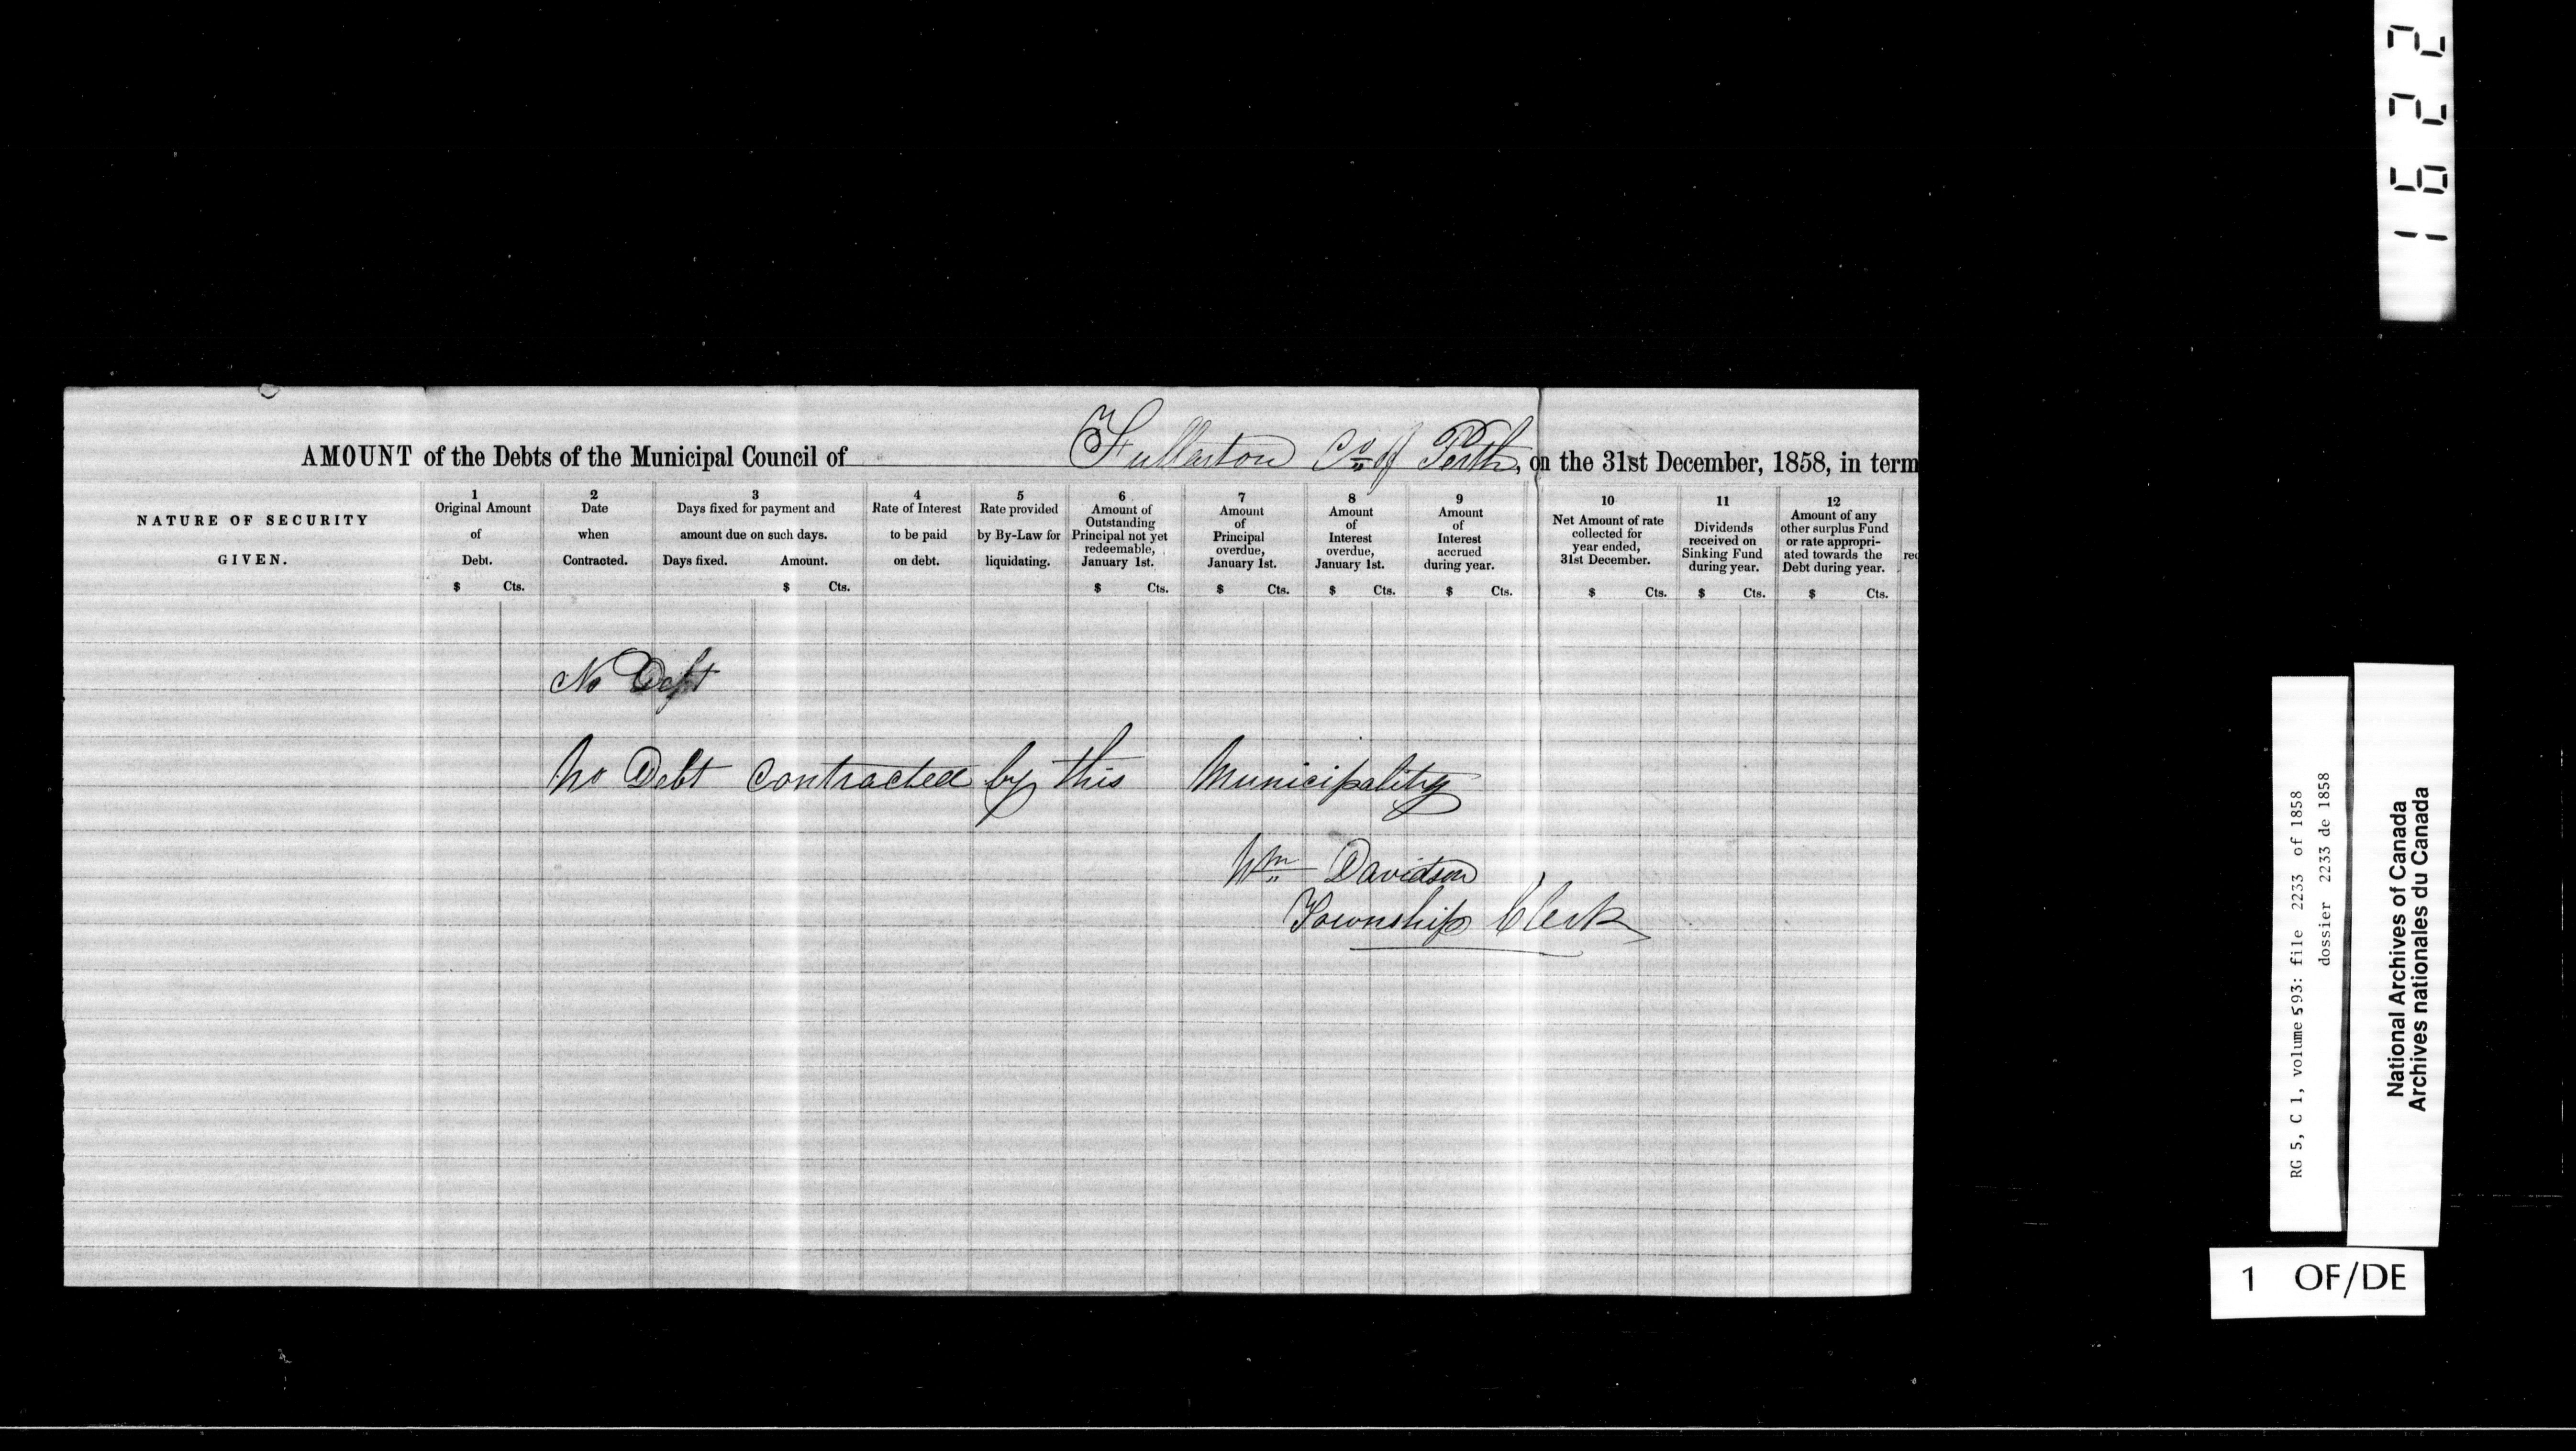 1622
AMOUNT of the Debts of the Municipal Council of Fullarton Co. of Perth, on the 31st December, 1858, in term
NATURE OF SECURITY
GIVEN.
1
Original Amount
of
Debt.
$ Cts.
2
Date
when
Contracted.
3
Days fixed for payment and
amount due on such days.
Days fixed. Amount.
$ Cts.
4
Rate of Interest
to be paid
on debt.
5
Rate provided
by By-Law for
liquidating.
6
Amount of
Outstanding
Principal not yet
redeemable,
January 1st.
$ Cts.
7
Amount
of
Principal
overdue,
January 1st.
$ Cts.
8
Amount
of
Interest
overdue,
January 1st.
$ Cts.
9
Amount
of
Interest
accrued
during year.
$ Cts.
10
Net Amount of rate
collected for
year ended,
31st December.
$ Cts.
11
Dividends
received on
Sinking Fund
during year.
$ Cts.
12
Amount of any
other surplus Fund
or rate appropri-
ated towards the
Debt during year.
$ Cts.
rec
No Debt
No Debt contracted by this Municipality
Wm Davidson
Township Clerk
RG 5, C 1, volume 593: file 2233 of 1858
dossier 2233 de 1858
National Archives of Canada
Archives nationales du Canada
1 OF/DE